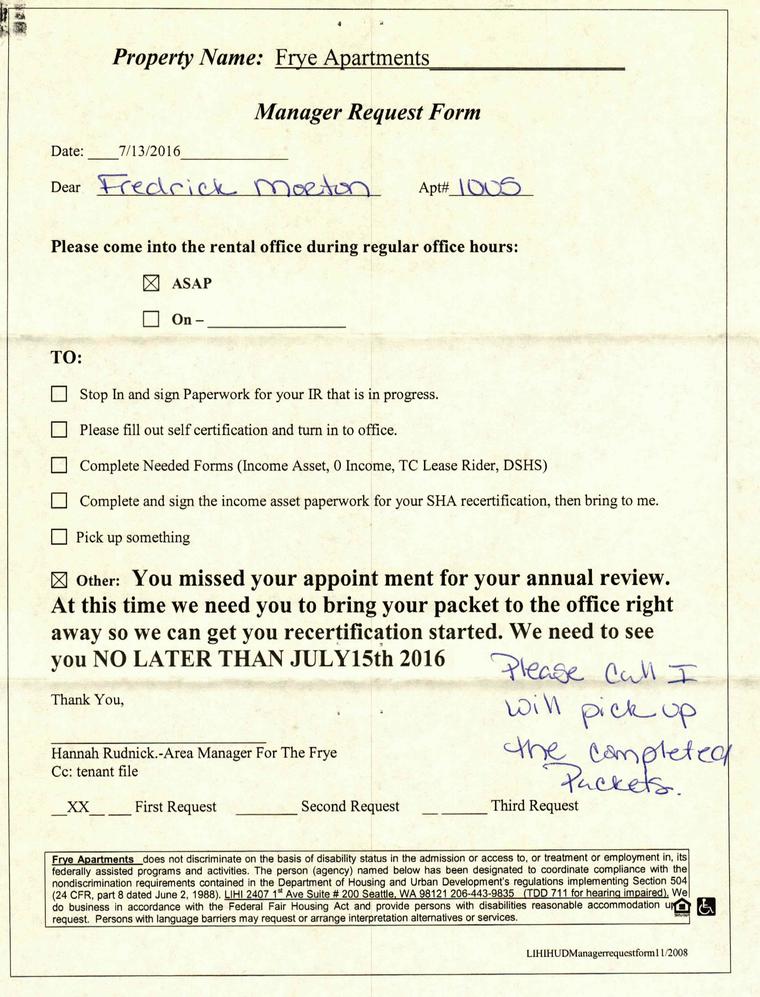 Property Name: Frye Apartments
Manager Request Form
Date: 7/13/2016
Dear Fredrick Morton Apt# 1005
Please come into the rental office during regular office hours:
☒ ASAP
☐ On –
TO:
☐ Stop In and sign Paperwork for your IR that is in progress.
☐ Please fill out self certification and turn in to office.
☐ Complete Needed Forms (Income Asset, 0 Income, TC Lease Rider, DSHS)
☐ Complete and sign the income asset paperwork for your SHA recertification, then bring to me.
☐ Pick up something
☒ Other: You missed your appoint ment for your annual review.
At this time we need you to bring your packet to the office right
away so we can get you recertification started. We need to see
you NO LATER THAN JULY15th 2016
Please Call I
will pick up
the completed
Packets.
Thank You,
Hannah Rudnick.-Area Manager For The Frye
Cc: tenant file
__XX__ ___ First Request ________ Second Request __ _____ Third Request
Frye Apartments does not discriminate on the basis of disability status in the admission or access to, or treatment or employment in, its
federally assisted programs and activities. The person (agency) named below has been designated to coordinate compliance with the
nondiscrimination requirements contained in the Department of Housing and Urban Development's regulations implementing Section 504
(24 CFR, part 8 dated June 2, 1988). LIHI 2407 1st Ave Suite # 200 Seattle, WA 98121 206-443-9835 (TDD 711 for hearing impaired). We
do business in accordance with the Federal Fair Housing Act and provide persons with disabilities reasonable accommodation
request. Persons with language barriers may request or arrange interpretation alternatives or services.
LIHIHUDManagerrequestform11/2008